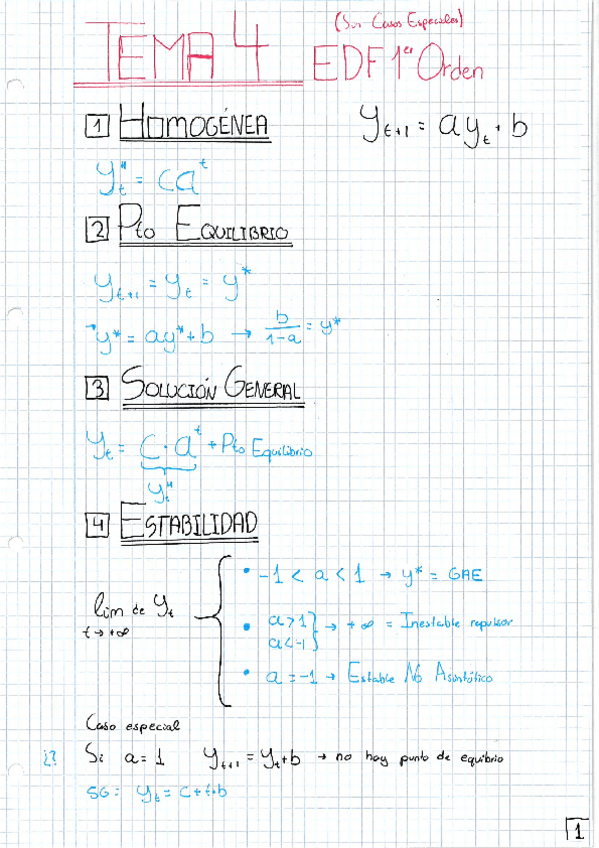 TEMA 4
(Sin Casos Especiales)
EDF 1er Orden
1 HOMOGÉNEA
y_{t+1} = ay_t + b
y_t^H = ca^t
2 Pto EQUILIBRIO
y_{t+1} = y_t = y*
→ y* = ay* + b → b/(1-a) = y*
3 SOLUCIÓN GENERAL
y_t = C · a^t + Pto Equilibrio
y_t^H
4 ESTABILIDAD
lim de y_t
t → +∞
• -1 < a < 1 → y* = GAE
• a > 1
a < -1 } → +∞ = Inestable repulsor
• a = -1 → Estable No Asintótico
Caso especial
¿? Si a = 1 y_{t+1} = y_t + b → no hay punto de equibrio
SG: y_t = C + t · b
1